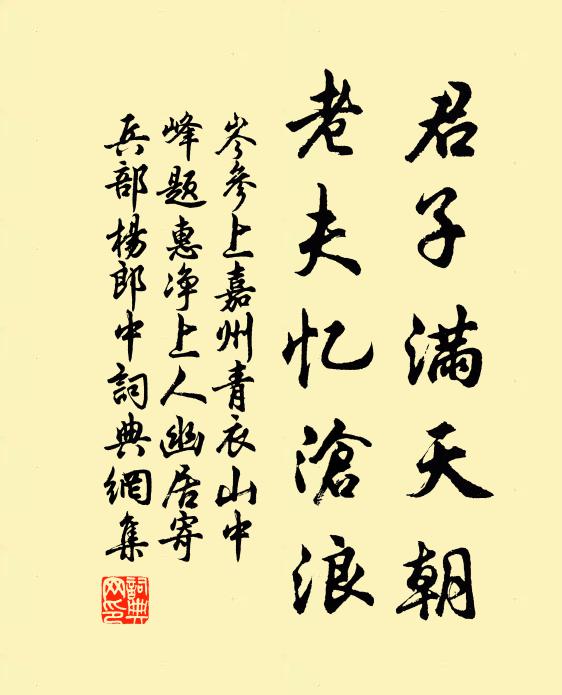 君子满天朝
老夫忆滄浪
岑參上嘉州青衣山中
峰题惠净上人幽居寄
兵部楊郎中詞典網集
詞典网印